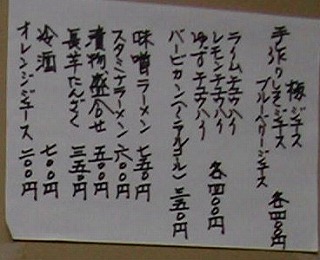 梅ジュース
手作りレモンジュース
ブルーベリージュース
各四〇〇円
ライムチュウハイ
レモンチュウハイ
ゆずチュウハイ
各四〇〇円
バービカン(ノンアルコール)三五〇円
味噌ラーメン 七五〇円
スタミナラーメン 六〇〇円
漬物盛合せ 五〇〇円
長芋たんざく 三五〇円
冷酒 七〇〇円
オレンジジュース 二〇〇円